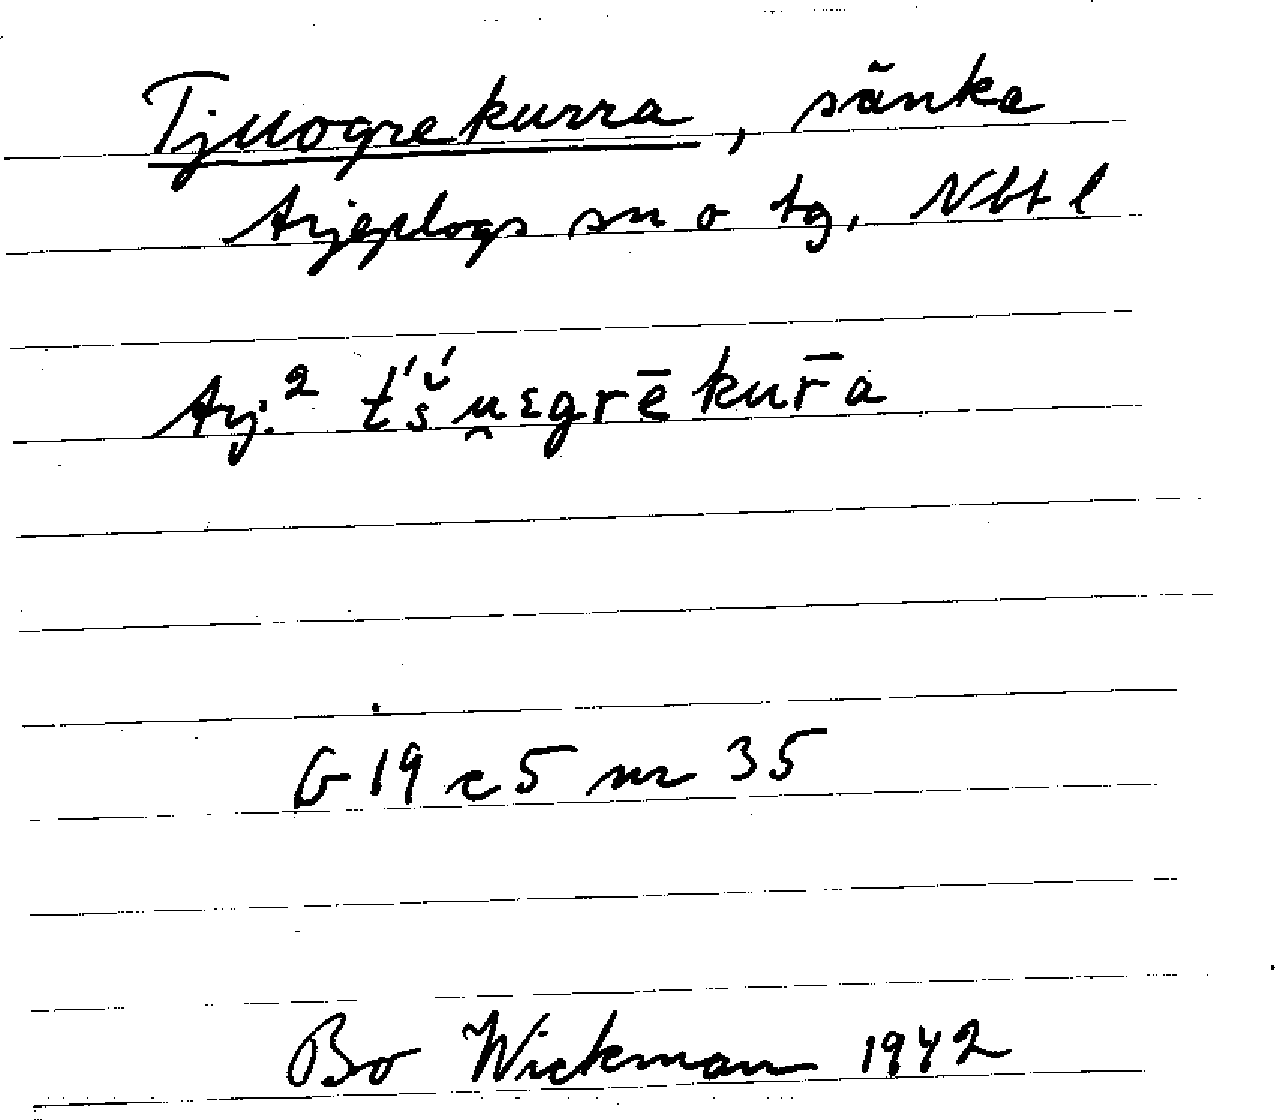 Tjuogrekurra, sänka
Arjeplogs sn o tg, Nbt l
Arj.² t́š́u̯ɛgrēkur̄a
G 19 c 5 nr 35
Bo Wickman 1942